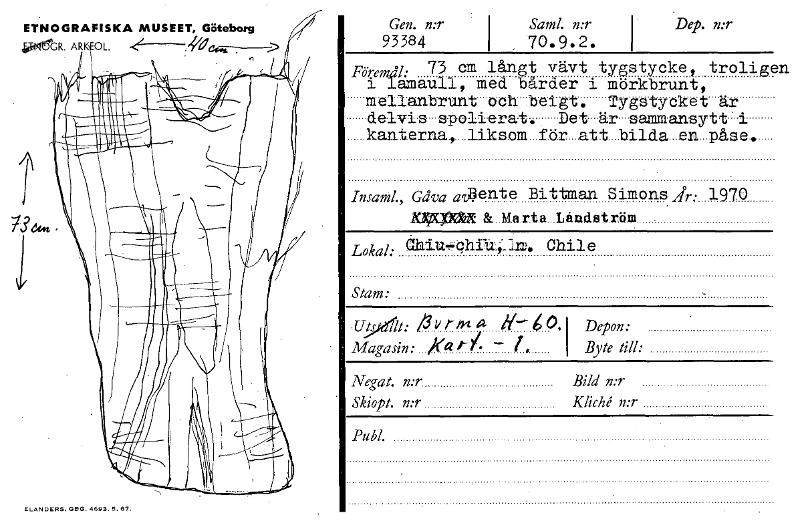 ETNOGRAFISKA MUSEET, Göteborg
ETNOGR. ARKEOL.
40 cm
73 cm.
ELANDERS, GBG. 4693. 5. 67.
Gen. n:r Saml. n:r Dep. n:r
93384 70.9.2.
Föremål: 73 cm långt vävt tygstycke, troligen
i lamaull, med bårder i mörkbrunt,
mellanbrunt och beigt. Tygstycket är
delvis spolierat. Det är sammansytt i
kanterna, liksom för att bilda en påse.
Insaml., Gåva av: Bente Bittman Simons År: 1970
& Marta Landström
Lokal: Chiu-chiu, n. Chile
Stam:
Utställt: Burma H-60. Depon:
Magasin: Kart. - 1. Byte till:
Negat. n:r Bild n:r
Skiopt. n:r Kliché n:r
Publ.